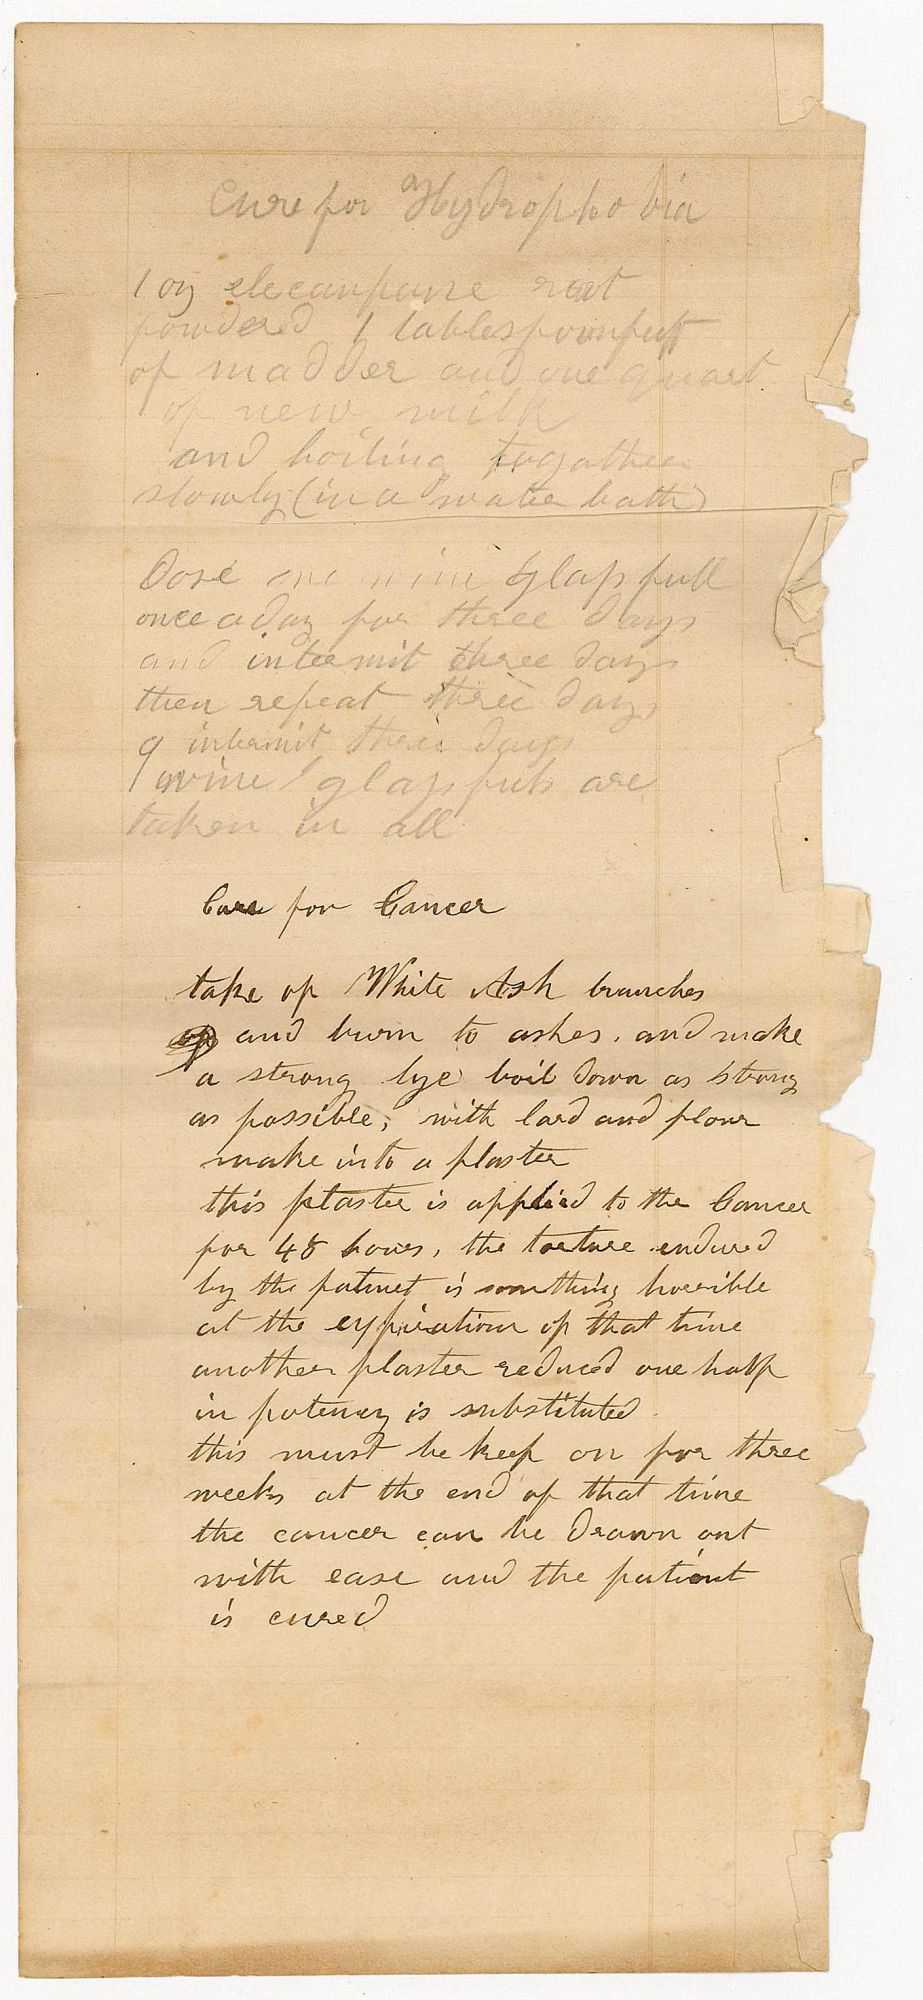 Cure for Hydrophobia
1 oz elecanpane root
powdered 1 tablespoonfull
of madder and one quart
of new milk
and boiling togather
slowly (in a water bath)
Dose one wine glassfull
once a day for three days
and intermit three days
then repeat three days
& intermit three days
9 wine glassfuls are
taken in all
Cure for Cancer
take of White Ash branches
and burn to ashes. and make
a strong lye boil down as strong
as possible, with lard and flour
make into a plaster
this plaster is applied to the Cancer
for 48 hours, the torture endured
by the patinet is somthing horrible
at the expiration of that time
another plaster reduced one half
in potency is substituted
this must be keep on for three
weeks at the end of that time
the cancer can be drawn out
with ease and the patient
is cured